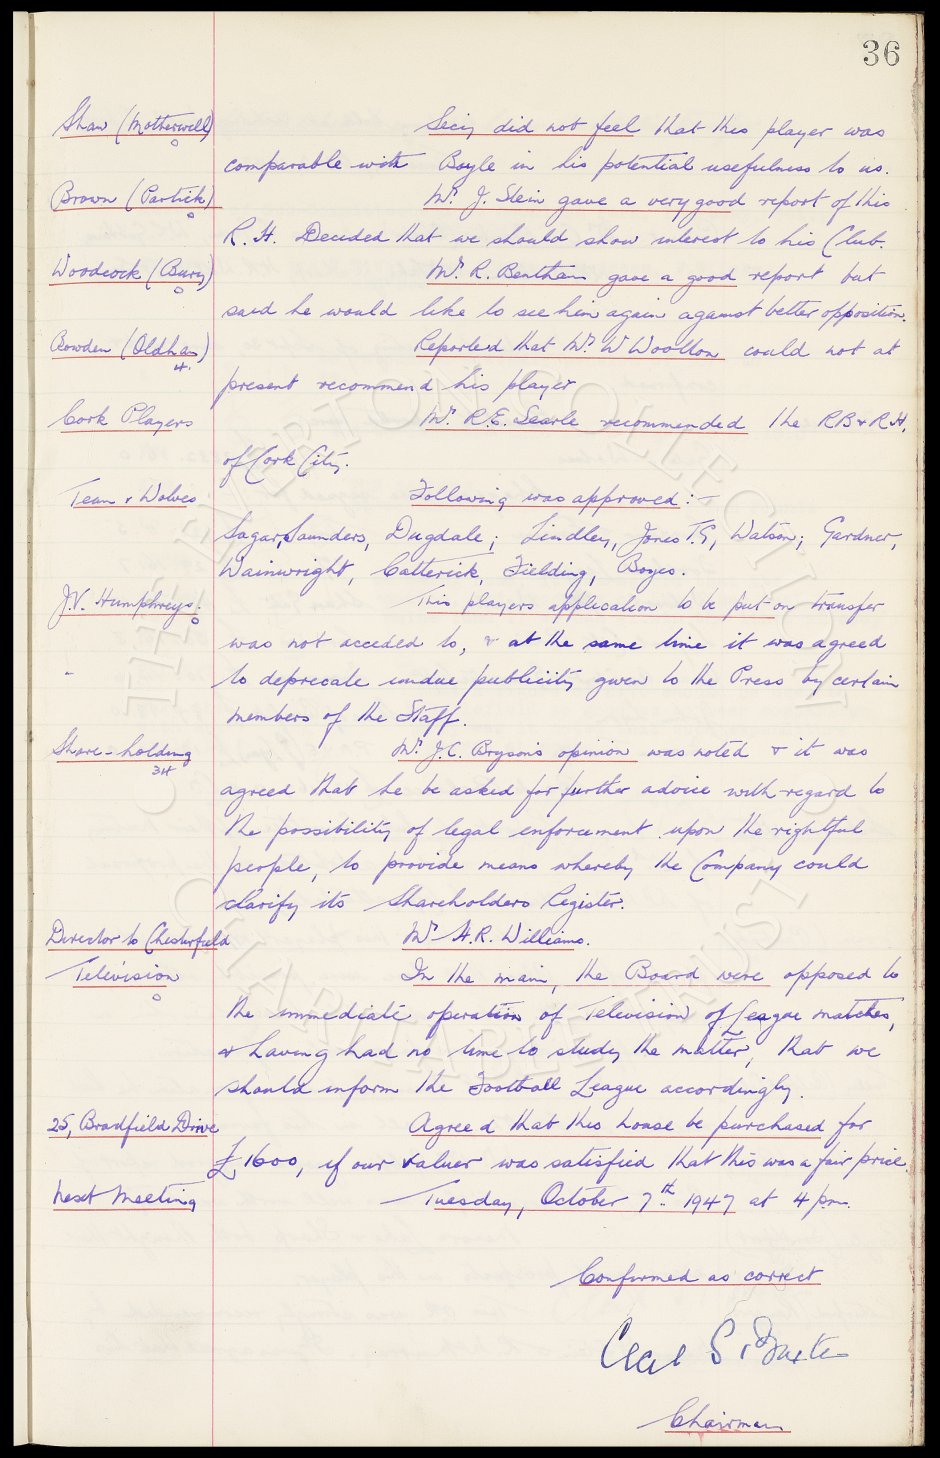 36
Shaw (Motherwell) Secy did not feel that this player was
comparable with Boyle in his potential usefulness to us.
Brown (Partick) Mr. J. Stein gave a very good report of this
R.H. Decided that we should show interest to his Club.
Woodcock (Bury) Mr. R. Bentham gave a good report but
said he would like to see him again against better opposition.
Bowden (Oldham) Reported that Mr. W Woolton could not at
4.
present recommend his player
Cork Players Mr. R.E. Searle recommended the RB & R.H.
of Cork City.
Team v Wolves Following was approved:-
Sagar, Saunders, Dugdale; Lindley, Jones T.G, Watson; Gardner,
Wainwright, Catterick, Fielding, Boyes.
J.V. Humphreys. This players application to be put on transfer
was not acceded to, & at the same time it was agreed
" to deprecate undue publicity given to the Press by certain
members of the Staff.
Share-holding Mr. J.C. Bryson's opinion was noted & it was
34
agreed that he be asked for further advice with regard to
the possibility of legal enforcement upon the rightful
people, to provide means whereby the Company could
clarify its Shareholders Register.
Director to Chesterfield Mr H.R. Williams.
Television In the main, the Board were opposed to
the immediate operation of Television of League matches,
& having had no time to study the matter, that we
should inform the Football League accordingly.
25, Bradfield Drive Agreed that this house be purchased for
£1600, if our valuer was satisfied that this was a fair price.
Next Meeting Tuesday, October 7th. 1947 at 4 pm.
Confirmed as correct
Cecil S. Baxter
Chairman
THE EVERTON COLLECTION
CHARITABLE TRUST